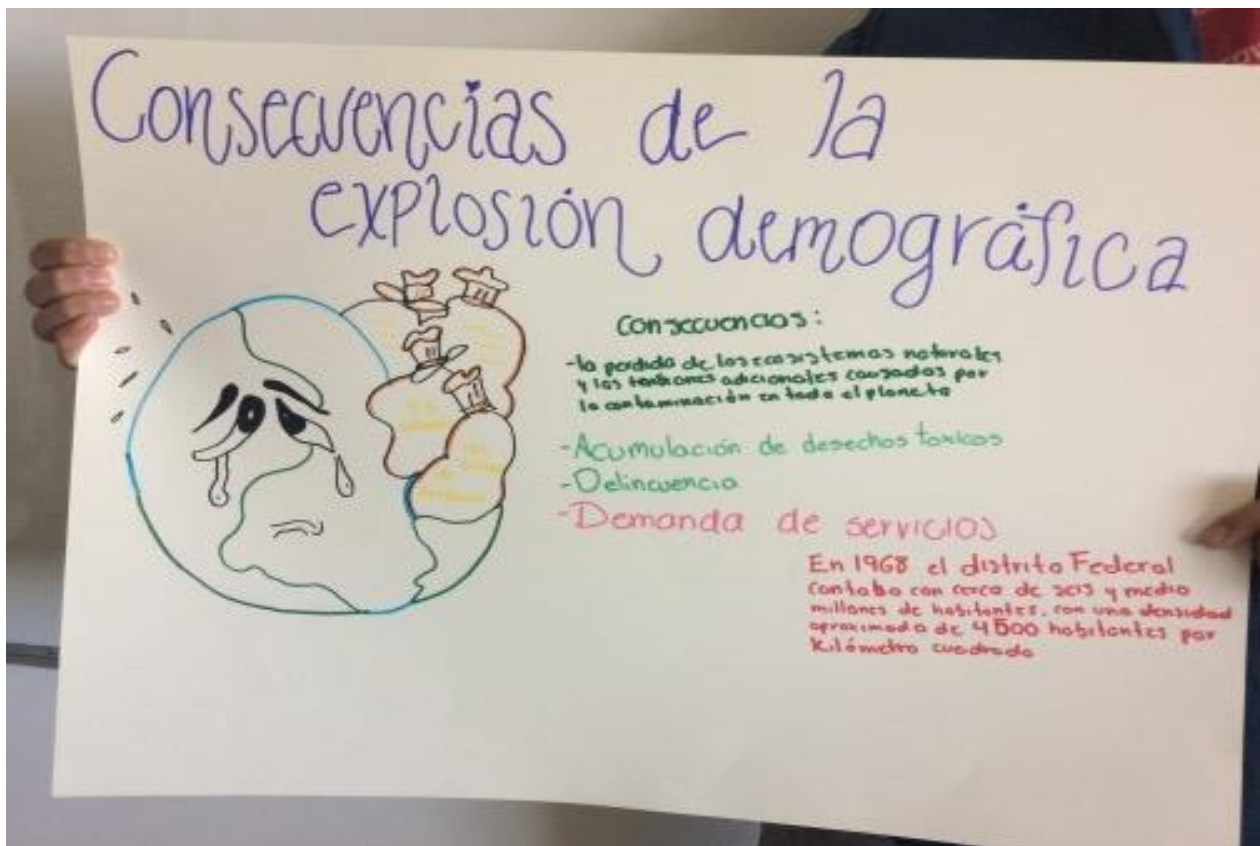 Consecuencias de la
explosión demográfica
Consecuencias:
-la perdida de los ecosistemas naturales
y las tensiones adicionales causadas por
la contaminación en todo el planeta
-Acumulación de desechos toxicos
-Delincuencia
-Demanda de servicios
En 1968 el distrito Federal
contaba con cerca de seis y medio
millones de habitantes, con una densidad
aproximada de 4500 habitantes por
kilómetro cuadrado